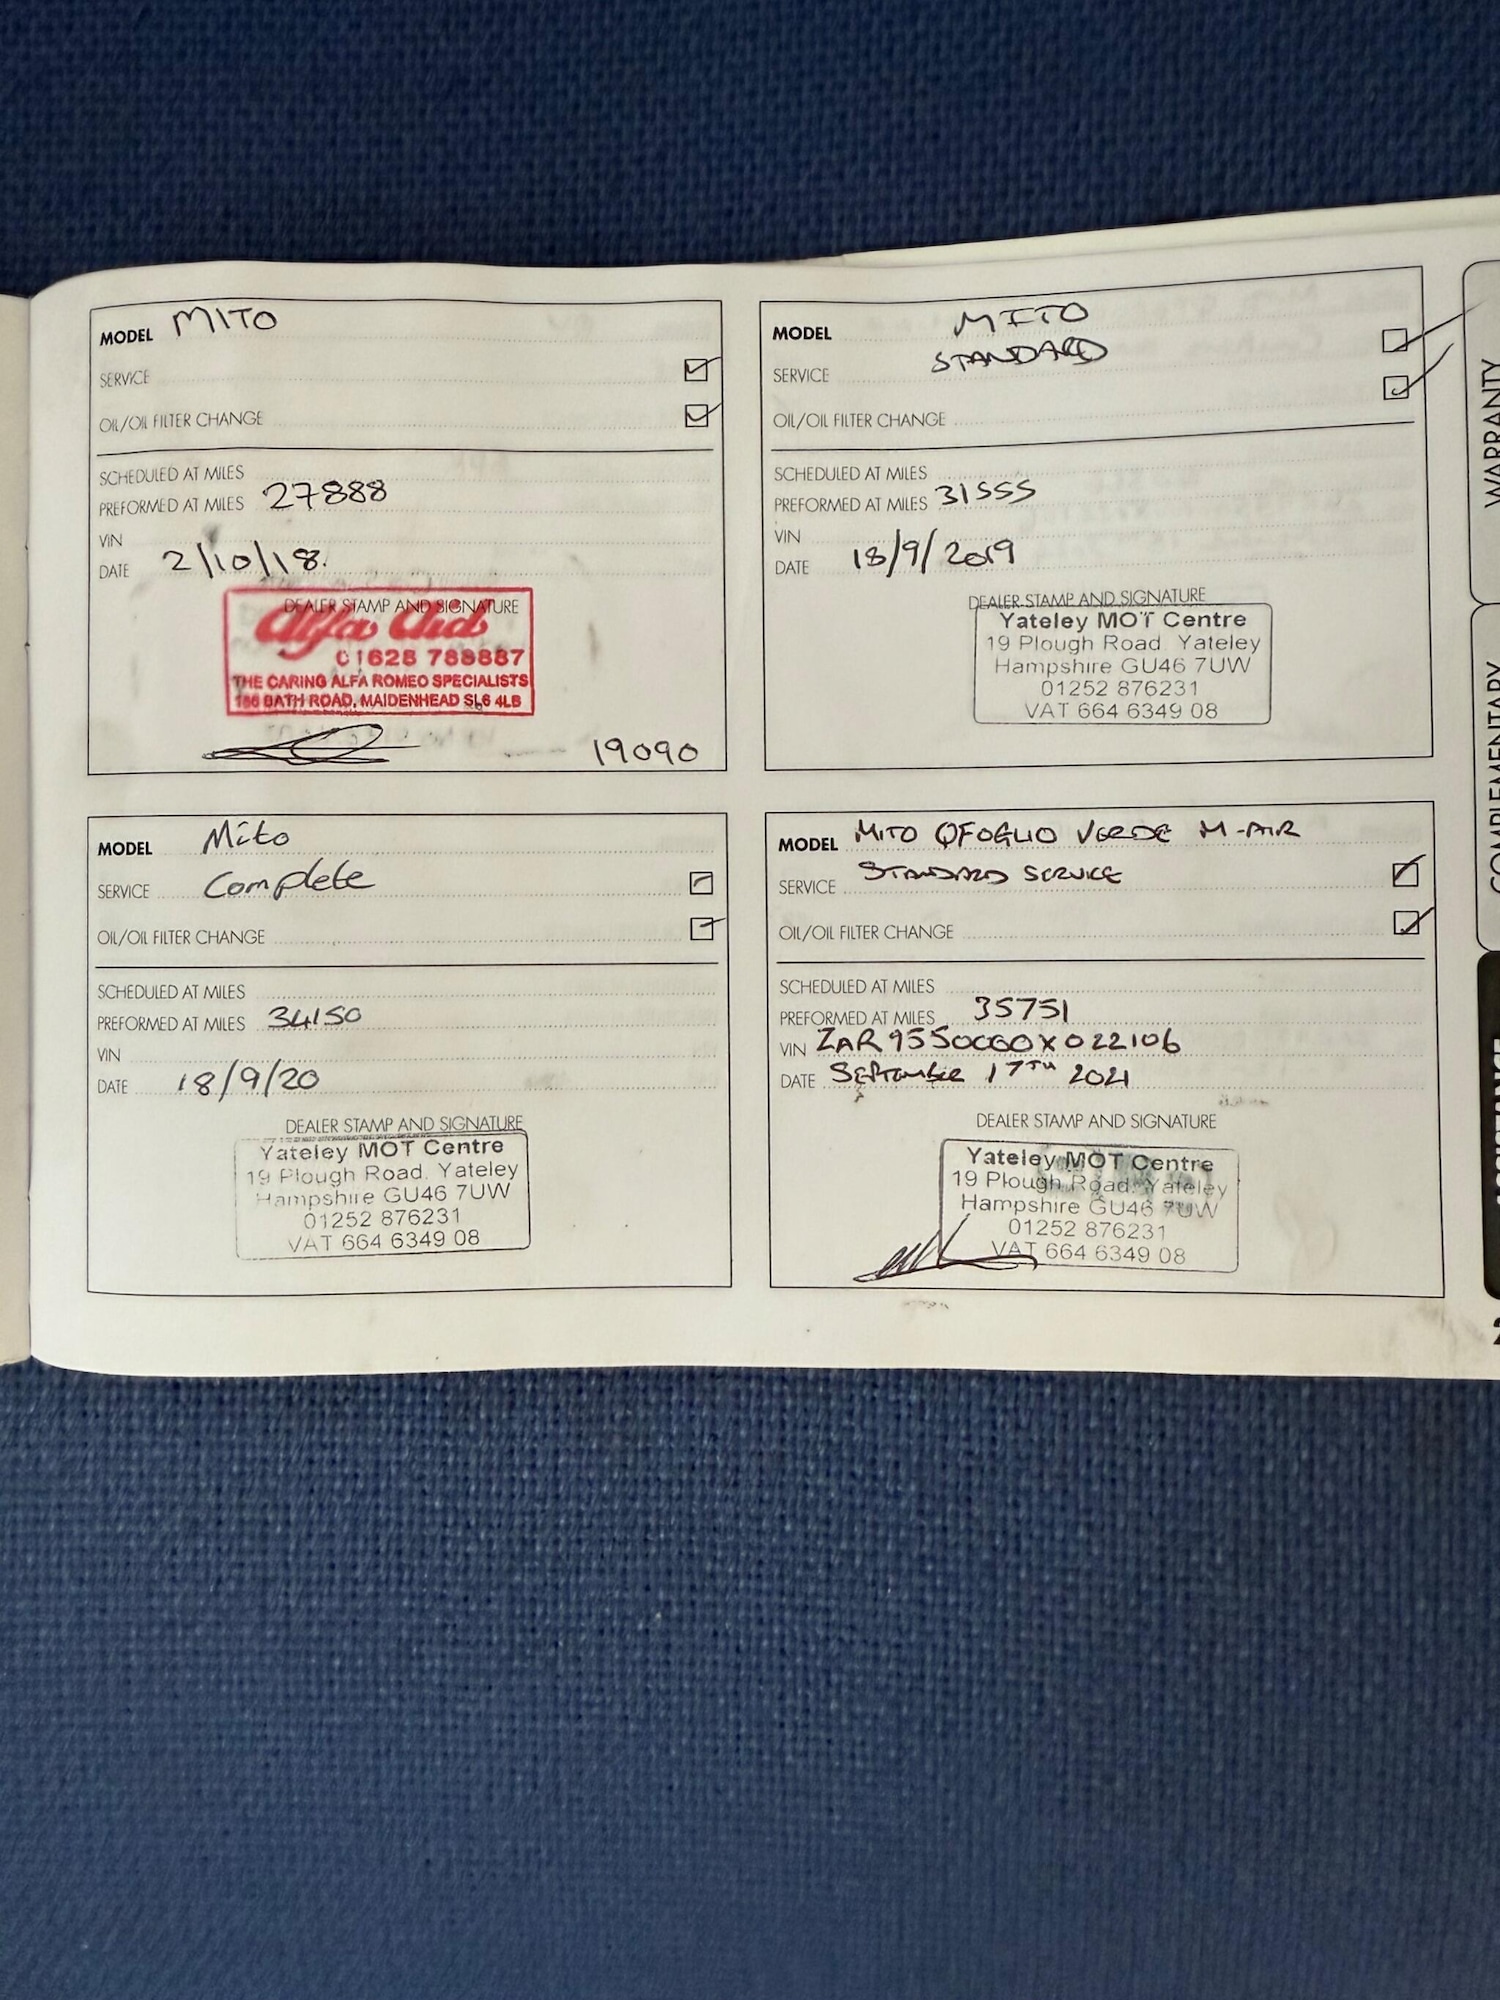 MODEL MITO
SERVICE
OIL/OIL FILTER CHANGE
SCHEDULED AT MILES
PREFORMED AT MILES 27888
VIN
DATE 2/10/18.
DEALER STAMP AND SIGNATURE
Alfa Aid
01628 788887
THE CARING ALFA ROMEO SPECIALISTS
166 BATH ROAD, MAIDENHEAD SL6 4LB
19090
MODEL MITO
SERVICE STANDARD
OIL/OIL FILTER CHANGE
SCHEDULED AT MILES
PREFORMED AT MILES 31555
VIN
DATE 18/9/2019
DEALER STAMP AND SIGNATURE
Yateley MOT Centre
19 Plough Road Yateley
Hampshire GU46 7UW
01252 876231
VAT 664 6349 08
MODEL Mito
SERVICE Complete
OIL/OIL FILTER CHANGE
SCHEDULED AT MILES
PREFORMED AT MILES 34150
VIN
DATE 18/9/20
DEALER STAMP AND SIGNATURE
Yateley MOT Centre
19 Plough Road. Yateley
Hampshire GU46 7UW
01252 876231
VAT 664 6349 08
MODEL MITO QFOGLIO VERDE M-AIR
SERVICE STANDARD SERVICE
OIL/OIL FILTER CHANGE
SCHEDULED AT MILES
PREFORMED AT MILES 35751
VIN ZAR95500000X022106
DATE SEPTEMBER 17TH 2021
DEALER STAMP AND SIGNATURE
Yateley MOT Centre
19 Plough Road. Yateley
Hampshire GU46 7UW
01252 876231
VAT 664 6349 08
WARRANTY
COMPLEMENTARY